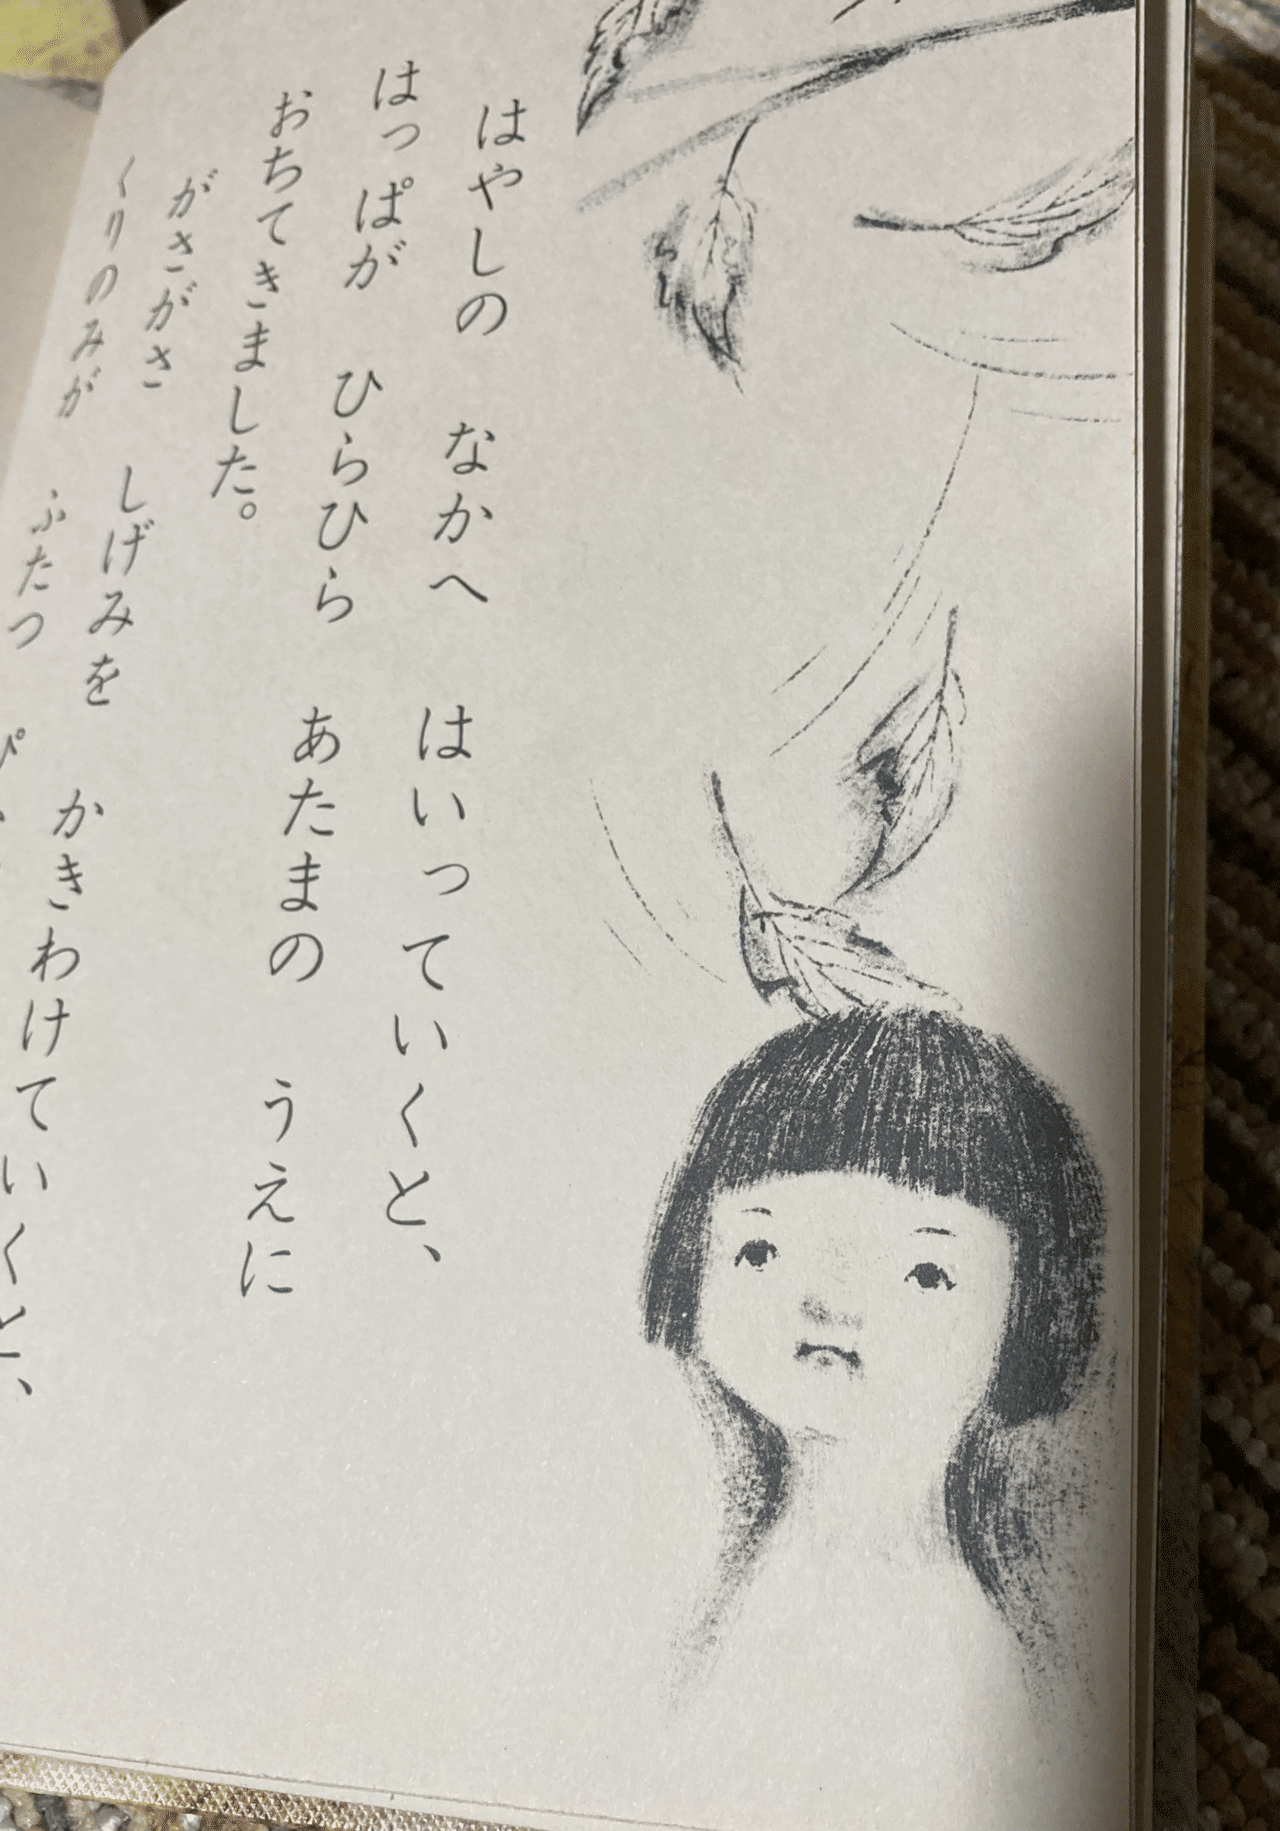 はやしの　なかへ　はいっていくと、
はっぱが　ひらひら　あたまの　うえに
おちてきました。
がさがさ　しげみを　かきわけていくと、
くりのみが　ふたつ